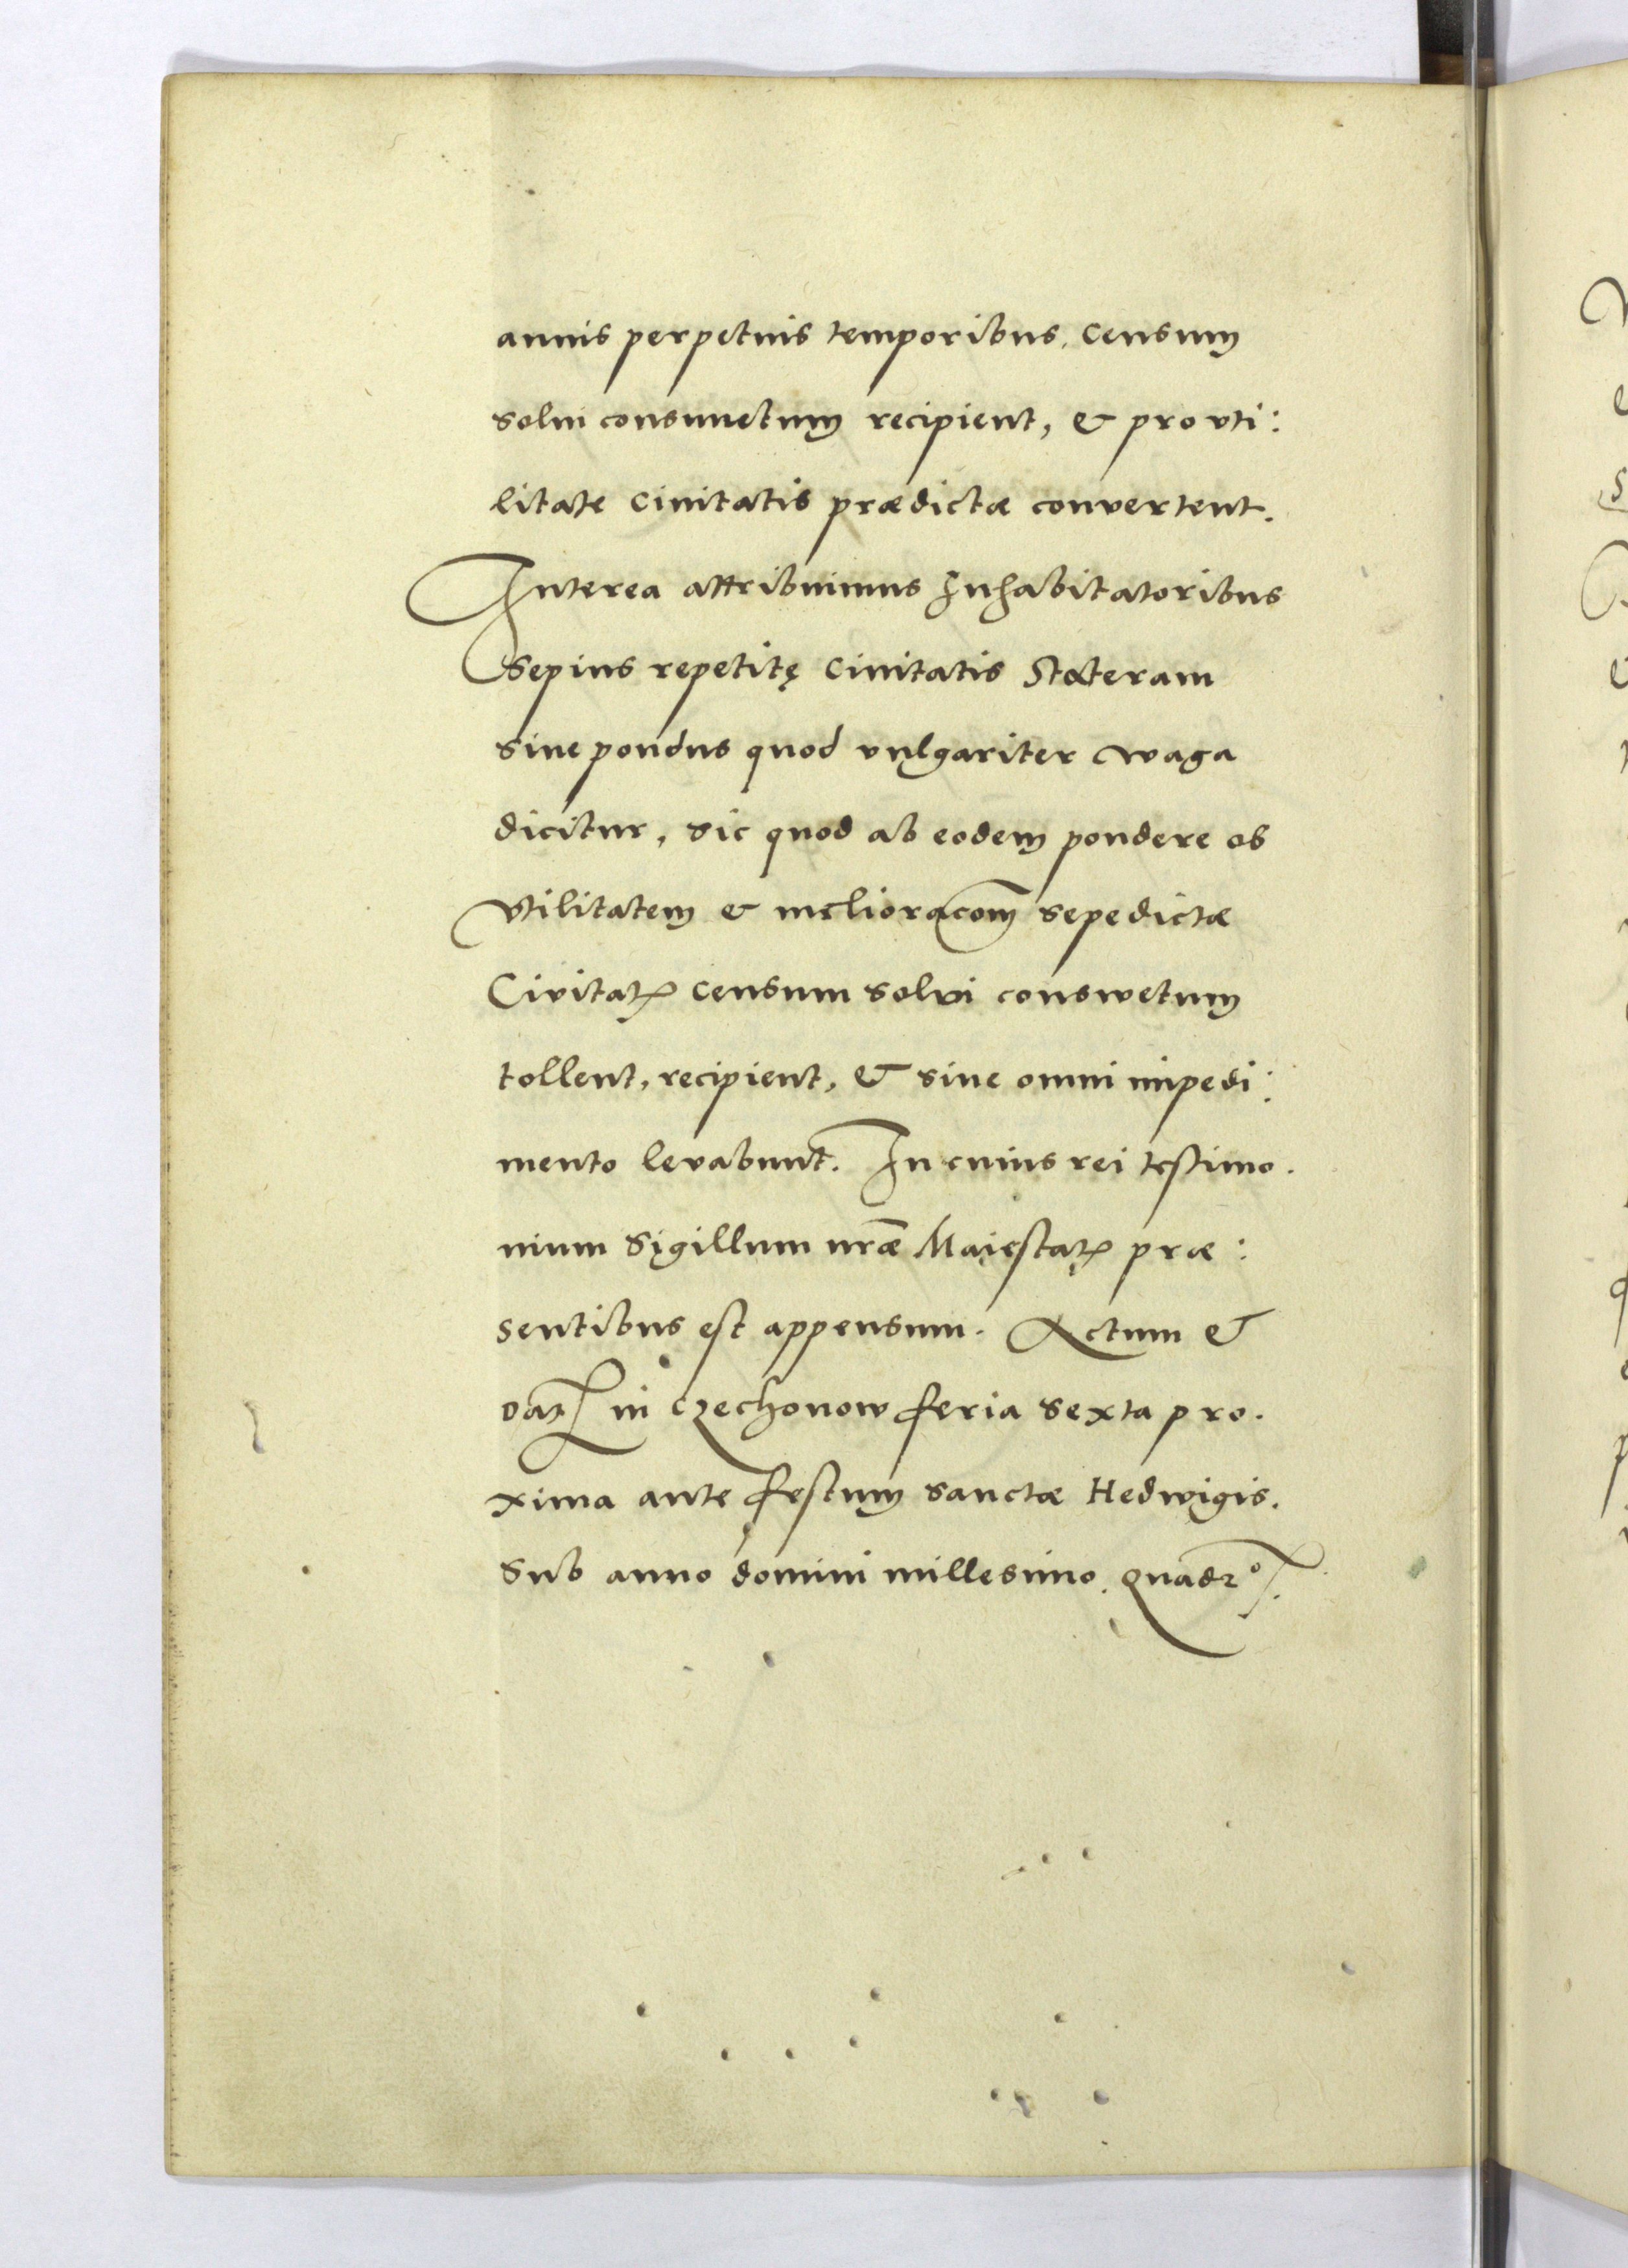 annis perpetuis temporibus, censum
solui consuuetum recipient, & pro vti:
litate ciuitatis prædictæ convertent.
Interea attribuimus Inhabitatoribus
sepius repetitę ciuitatis Stateram
siue pondus quod vulgariter waga
dicitur, sic quod ab eodem pondere ob
vtilitatem & meliorac̃om sepedictæ
Civitatꝭ censum solvi conswetum
tollent, recipient, & sine omni impedi:
mento levabunt. In cuius rei testimo.
nium Sigillum nr̃æ Maiestatꝭ præ:
sentibus est appensum. Actum &
Dat̃ in Czechonow feria sexta pro.
xima ante festum sanctæ Hedwigis.
Sub anno domini millesimo quadrᵒ.